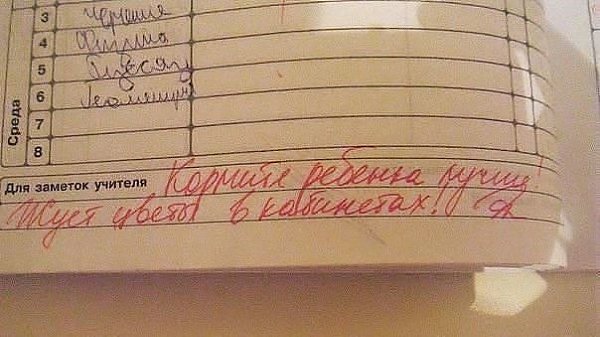 3 Черчение
4 Физика
5 Русский
6 Геометрия
7
8
Среда
Для заметок учителя Кормите ребенка лучше!
Жует цветы в кабинетах!